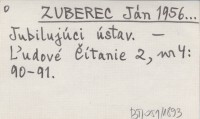 ZUBEREC Ján 1956...
Jubilujúci ústav. —
Ľudové Čítanie 2, nr 4:
90-91.